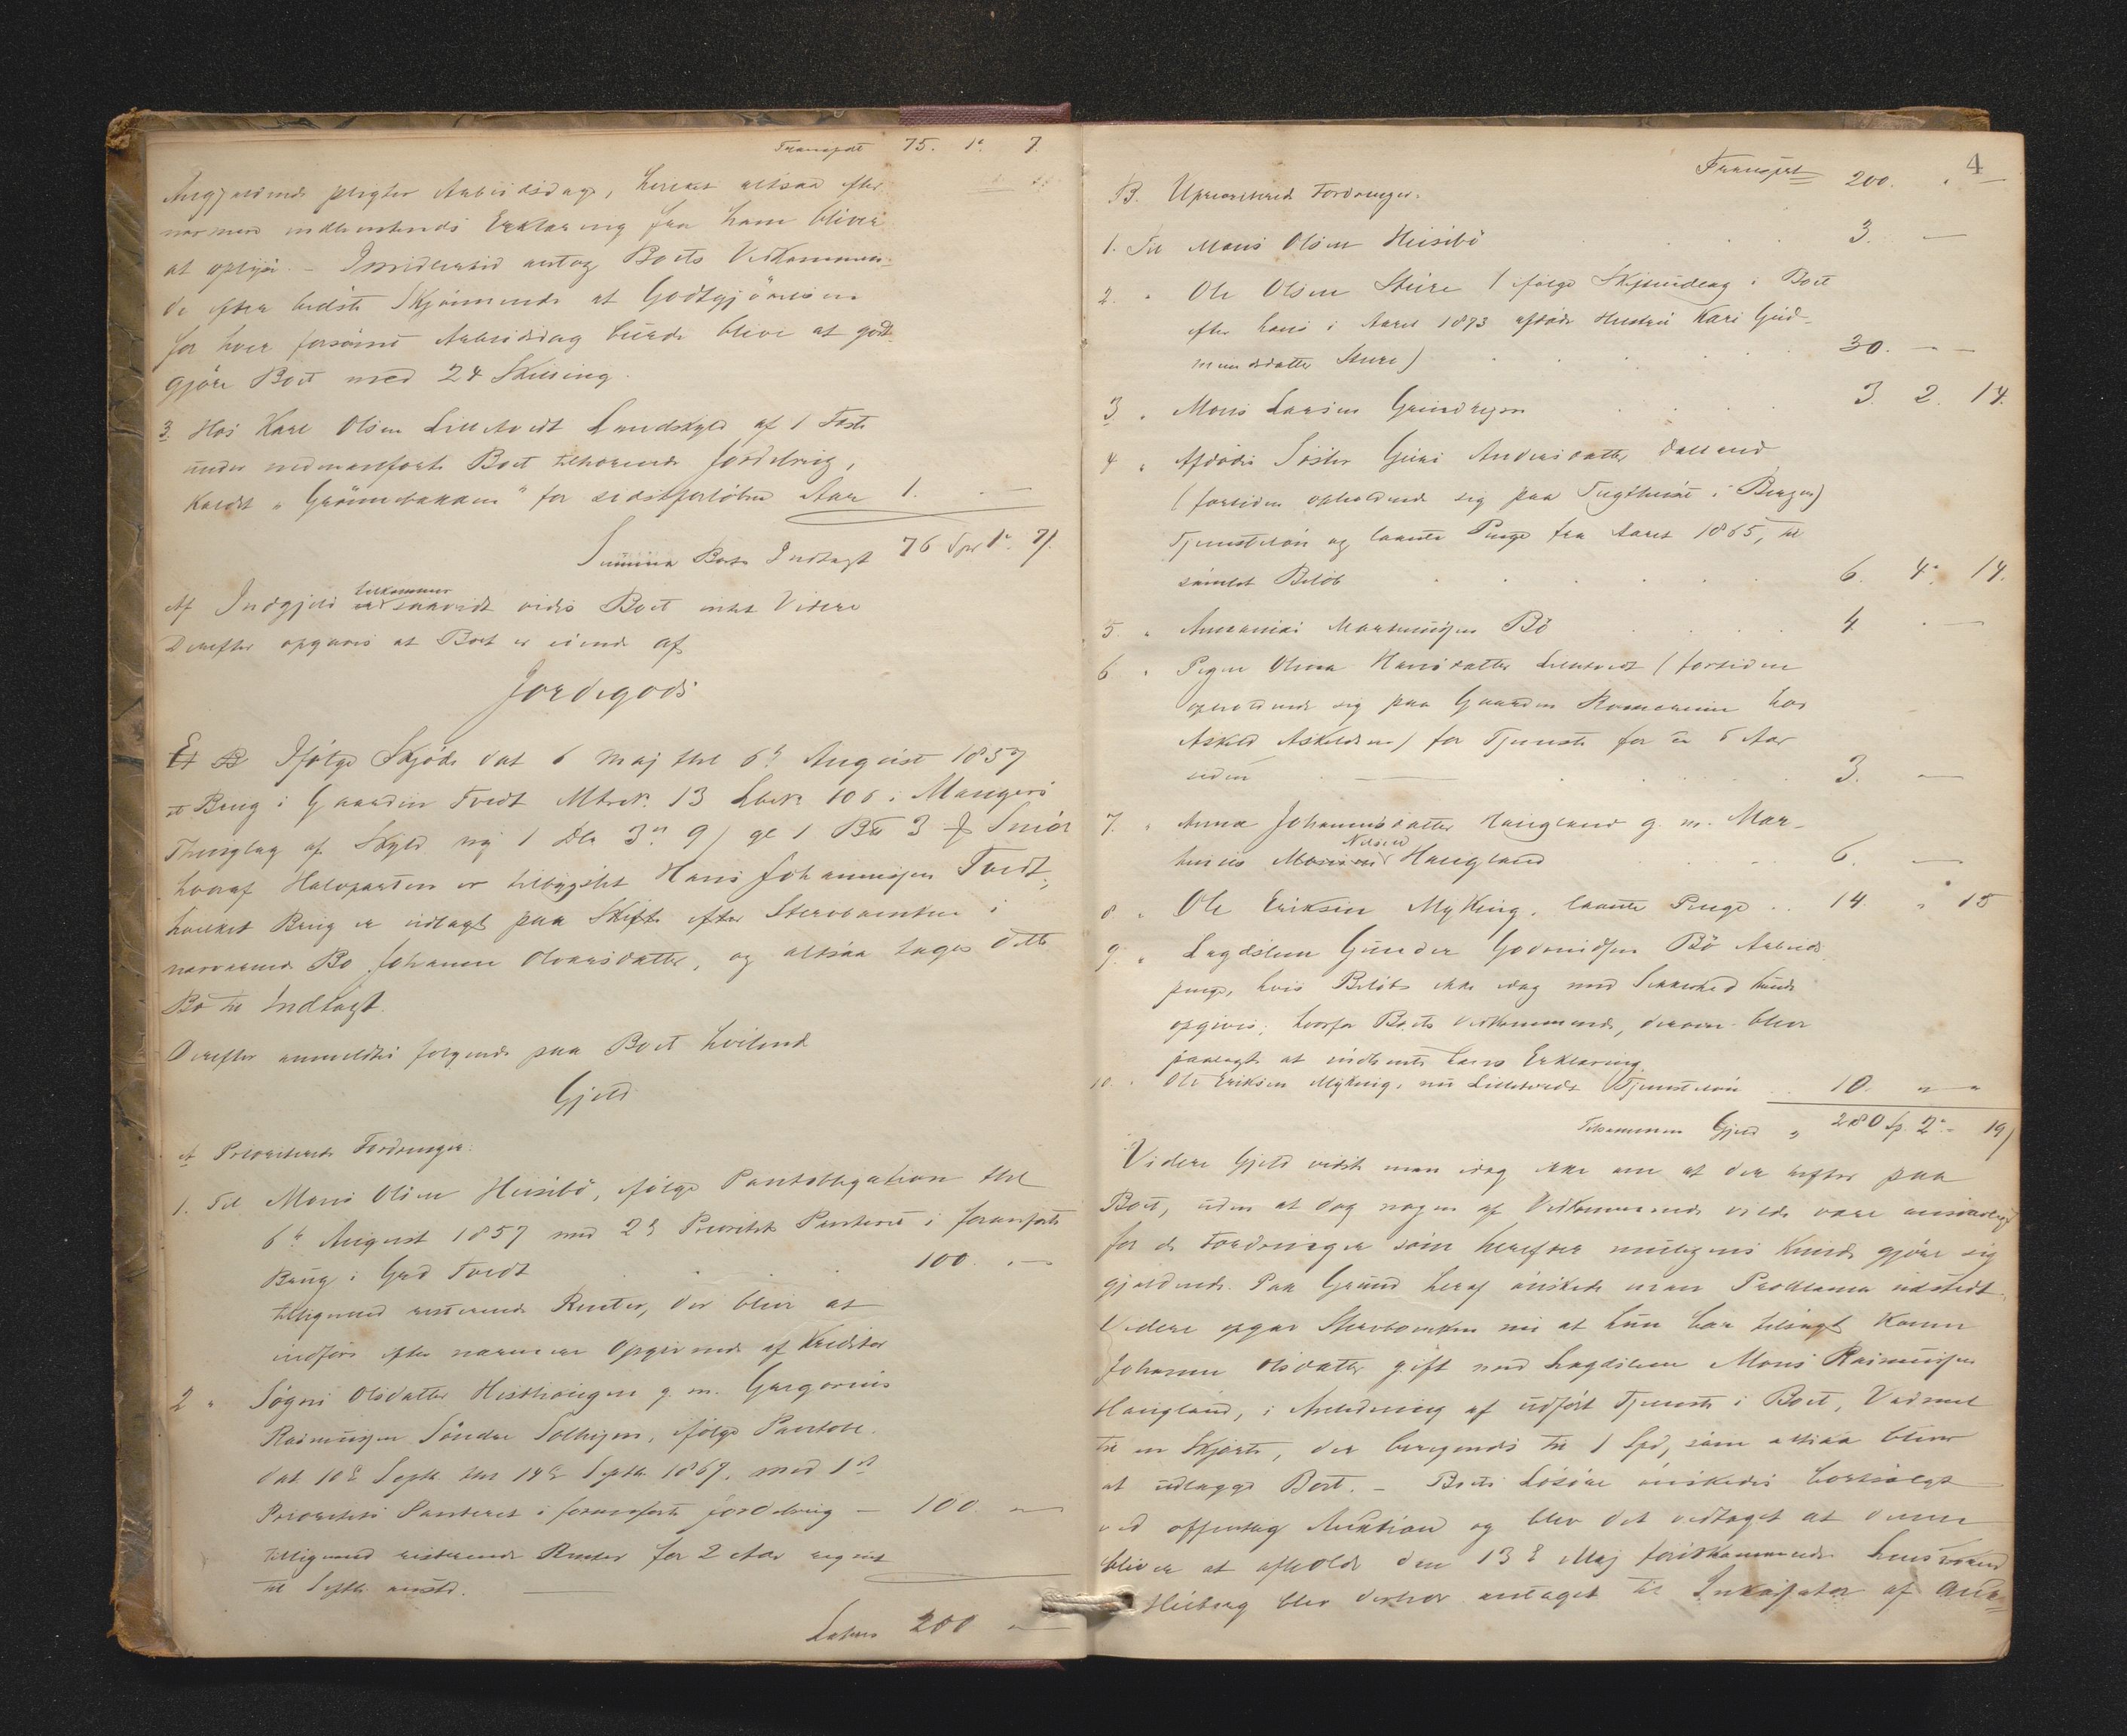 Transpdt 75. 1. 7.
Angjældende pligter Arbeidsdage, hvilket altsaa efter
nærmere indhentende Erklæring fra ham bliver
at oplyse. – Imidlertid antog Boets Vedkommen-
de efter bedste Skjønnende at Godtgjörelsen
for hver forsömt Arbeidsdag burde blive at godt-
gjöre Boet med 24 Skilling.
3. Hos Karl Olsen Lilletvedt Landskyld af 1 Fæste
under nedenanførte Boet tilhørende Jordebrug,
Kaldet "Grönnebakken" for sidstforløbne Aar 1. . –
Summa Boets Indtægt 76 Spd 1. 7/.
Af Indgjeld tilkommer saavidt vides Boet intet Videre
Derefter opgaves at Boet er eiende af
Jordegods
Ifølge Skjöde dat 6 Maj thl 6te August 1857
et Brug i Gaarden Tvedt Mtrk. 13 Lbk. 106 i Mangers
Thinglag af Skyld ny 1 Dlr 3 9/ gl 1 3 Smör
hvoraf Halvparten er tilbygslet Hans Johannesen Tvedt,
hvilket Brug er udlagt paa Skifte efter Stervboenken i
nærværende Bo Johanne Olversdatter, og altsaa tages dette
Bo til Indtægt.
Derefter anmeldtes følgende paa Boet hvilende
Gjeld
A Prioriterede Fordringer:
1. Til Mons Olsen Husebö, ifølge Pantobligation thl
6te August 1857 med 2den Prioritets Panteret i foranførte
Brug i Grd Tvedt . . . 100. . –
tilligemed resterende Renter, der bliver at
indføre efter nærmere Opgivende af Kreditor
2 " Sögni Olsdatter g. m. Gregorius
Rasmussen Söndre , ifølge Pantobl.
dat 10de Septbr thl 14de Septbr 1869, med 1ste
Prioritets Panteret i foranførte Jordebrug – 100 –
tilligemed resterende Renter for 2 Aar regnet
til Septbr .
Lateris 200 –
4
Transport 200. . –
B. Uprioriterede Fordringer.
1. Til Mons Olsen Husebö . . . 3. –
2. " Ole Olsen Sture (ifølge Skifteudlæg i Boet
efter hans i Aaret 1873 afdøde Hustru Kari Gud-
mundsdatter Sture) . . . 30. – –
3 " Mons Larsen . . . 3. 2. 14.
4 " Afdödes Söster Guri Andersdatter Dalland
(fortiden opholdende sig paa Tugthuset i Bergen)
Tjenstelön og laante Penge fra Aaret 1865, til
samlet Belöb . . . 6. 4. 14.
5. " Martinusen Bö . . . 4 . –
6 " Pigen Olina Hansdatter Lilletvedt (fortiden
opholdende sig paa Gaarden hos
Askild Askildsen) for Tjeneste for 5 Aar
siden . . . 3. –
7. " Anna Johannesdatter Haugland g. m. Mar-
tinus Monsen Nilsen Haugland . . . 6. –
8 " Ole Eriksen Myking, laante Penge . . 14. " 15
9. " Lægdslem Gunder Bö Arbeids
penge, hvis Belöb ikke idag med Sikkerhed kunde
opgives, hvorfor Boets Vedkommende, derom blev
paalagt at indhente hans Erklæring.
10. " Ole Eriksen Myking, nu Lilletvedt Tjenstelön 10. " "
Tilsammen Gjeld " 280 Sp. 2 – 19/
Videre Gjeld vidste man idag ikke om at der hefter paa
Boet, uden at dog nogen af Vedkommende vilde være ansvarlig
for de Fordringer som herefter muligens kunde gjöre sig
gjældende. Paa Grund heraf önskede man Proklama udstedt.
Videre opgav Stervboenken nu at hun har tilsagt Konen
Johanne Olsdatter gift med Lægdslem Mons Rasmussen
Haugland, i Anledning af udfört Tjeneste i Boet, Vadmel
til en Skjørte, der beregnedes til 1 Spd, som altsaa bliver
at udlægge Boet. – Boets Lösöre önskedes bortsolgt
ved offentlig Auktion og blev det vedtaget at denne
bliver at afholde den 13de Maj førstkommende. Lensmand
Heiberg blev derhos antaget til Inkassator af Auk-